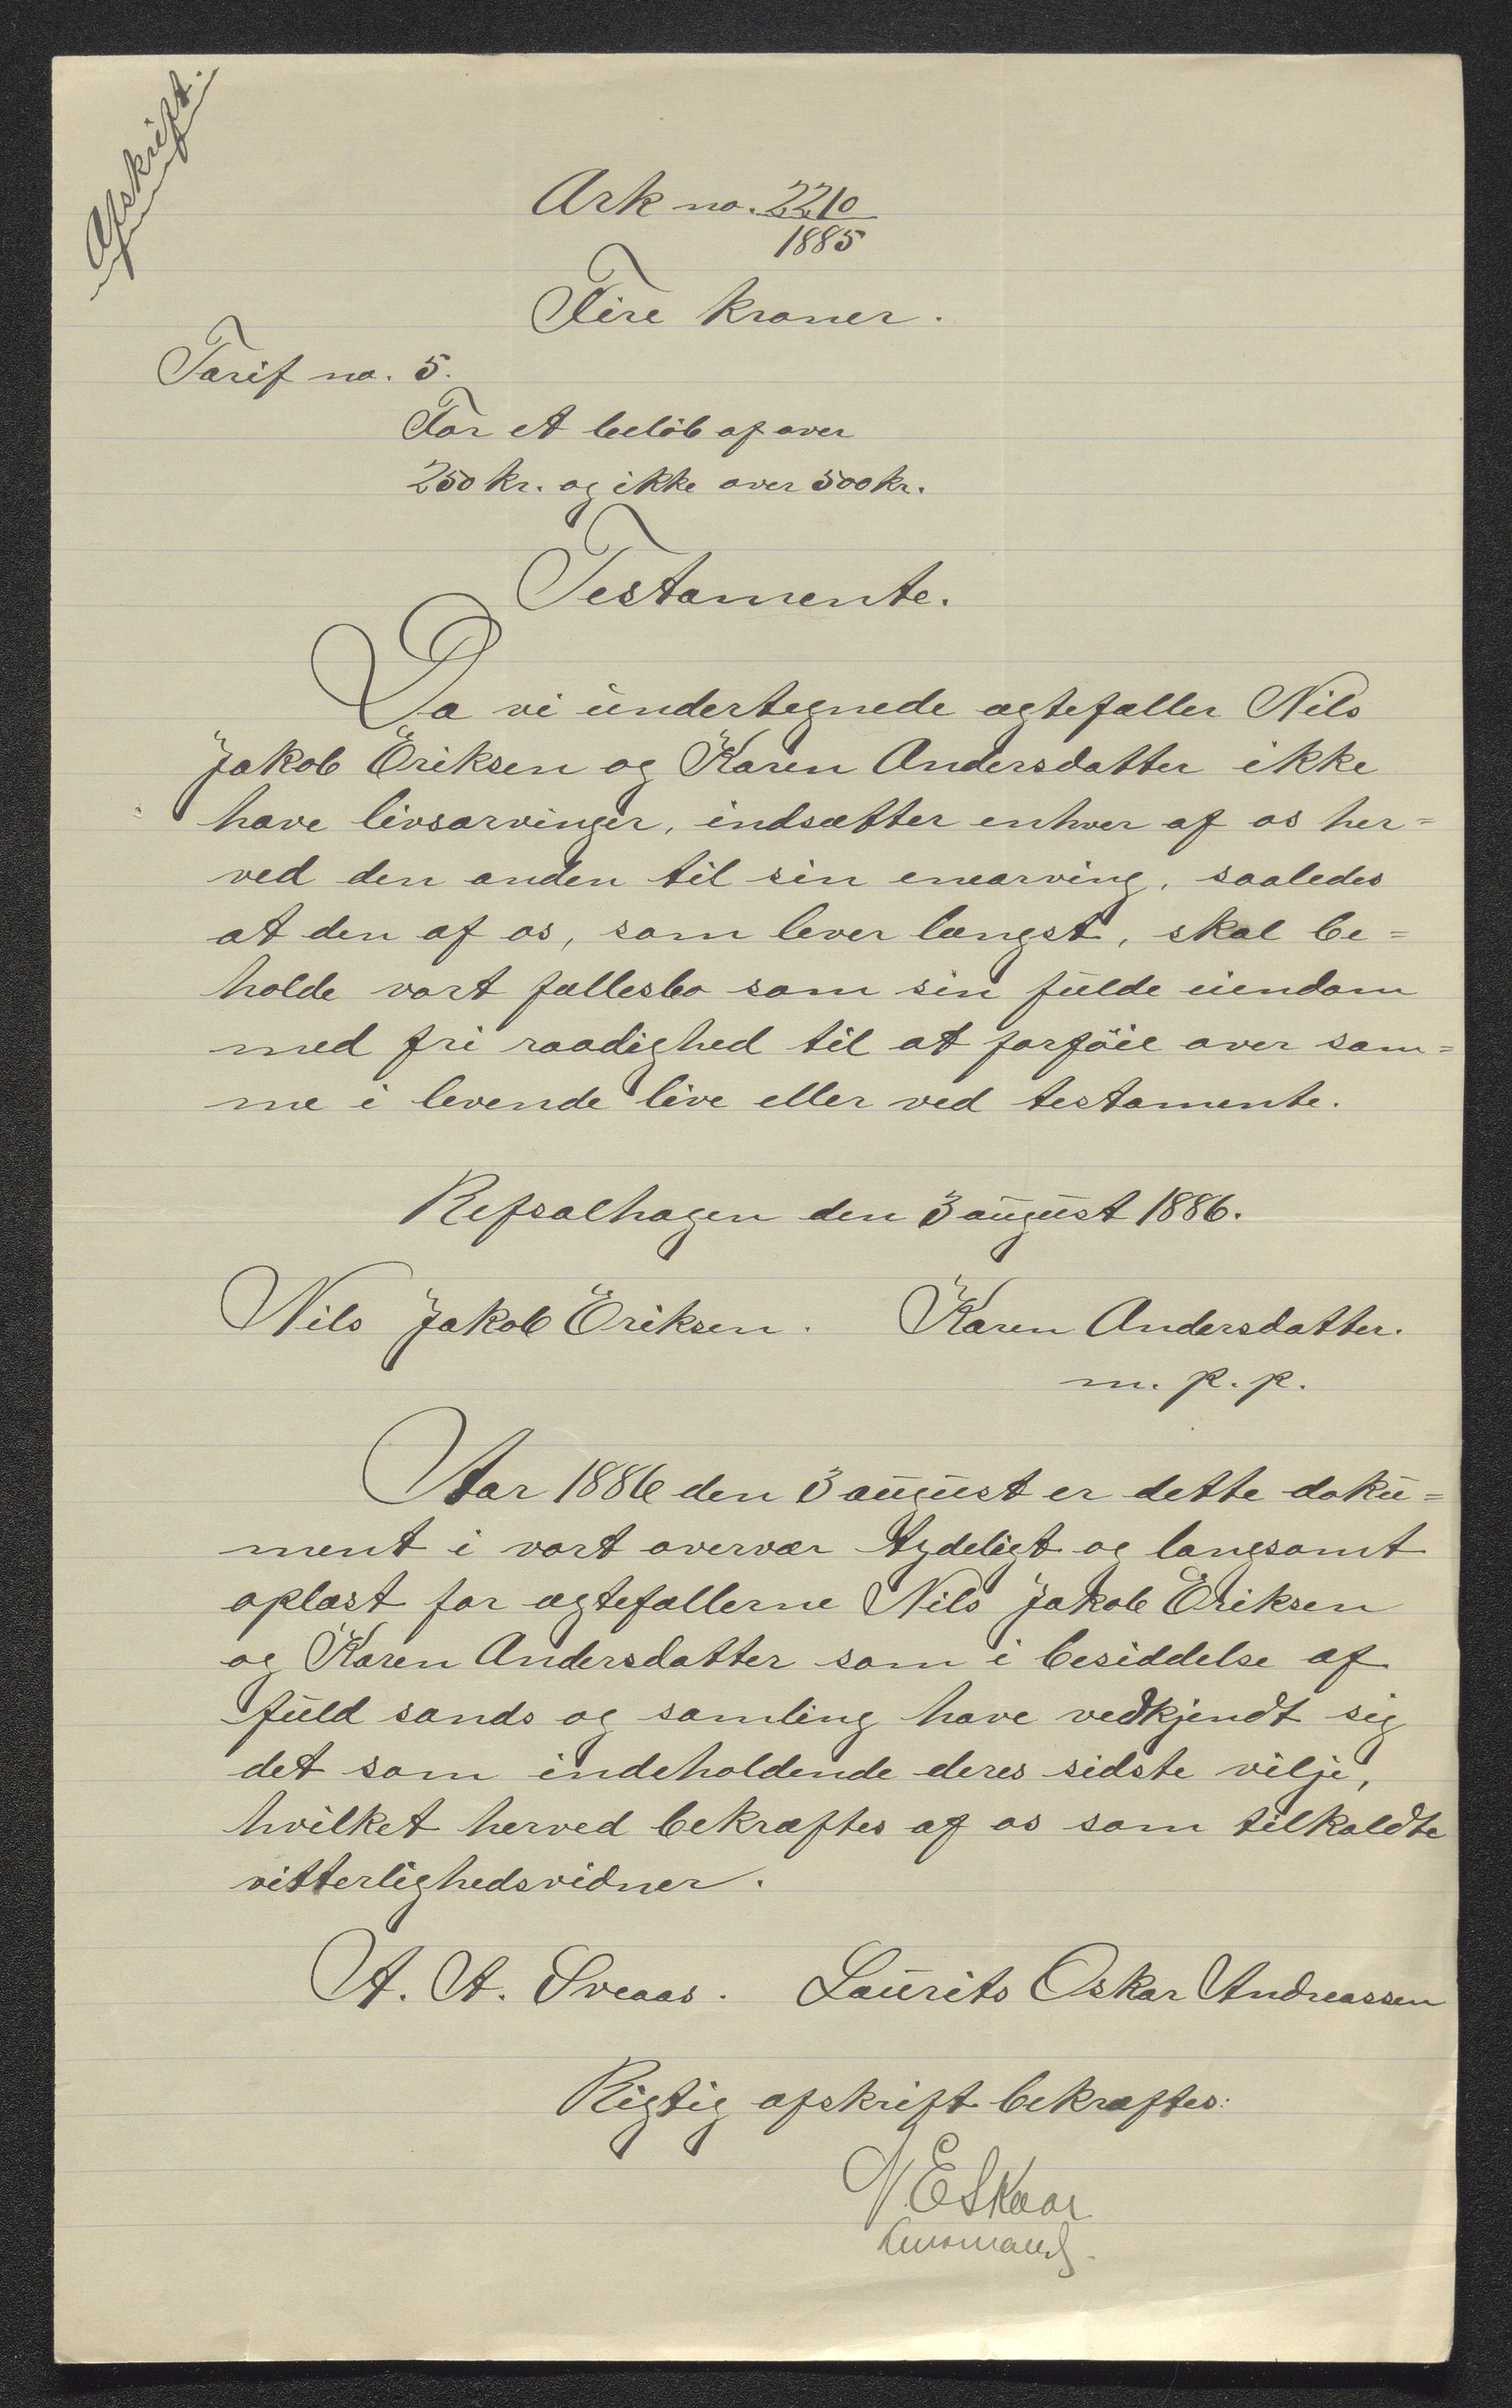 Afskrift.
Ark no. 2210
1885
Fire kroner.
Tarif no. 5.
For et beløb af over
250 kr. og ikke over 500 kr.
Testamente.
Da vi undertegnede ægtefæller Nils
Jakob Eriksen og Karen Andersdatter ikke
have livsarvinger, indsætter enhver af os her=
ved den anden til sin enearving, saaledes
at den af os, som lever længst, skal be=
holde vort fællesbo som sin fulde eiendom
med fri raadighed til at forføie over sam=
me i levende live eller ved testamente.
Refsalhagen den 3 august 1886.
Nils Jakob Eriksen. Karen Andersdatter.
m. p. p.
Aar 1886 den 3 august er dette doku=
ment i vort overvær tydeligt og langsomt
oplæst for ægtefællerne Nils Jakob Eriksen
og Karen Andersdatter som i besiddelse af
fuld sands og samling have vedkjendt sig
det som indeholdende deres sidste vilje,
hvilket herved bekræftes af os som tilkaldte
vitterlighedsvidner.
A. A. Sveaas. Laurits Oskar Andreassen
Rigtig afskrift bekræftes:
N. E. Skaar
Lensmand.